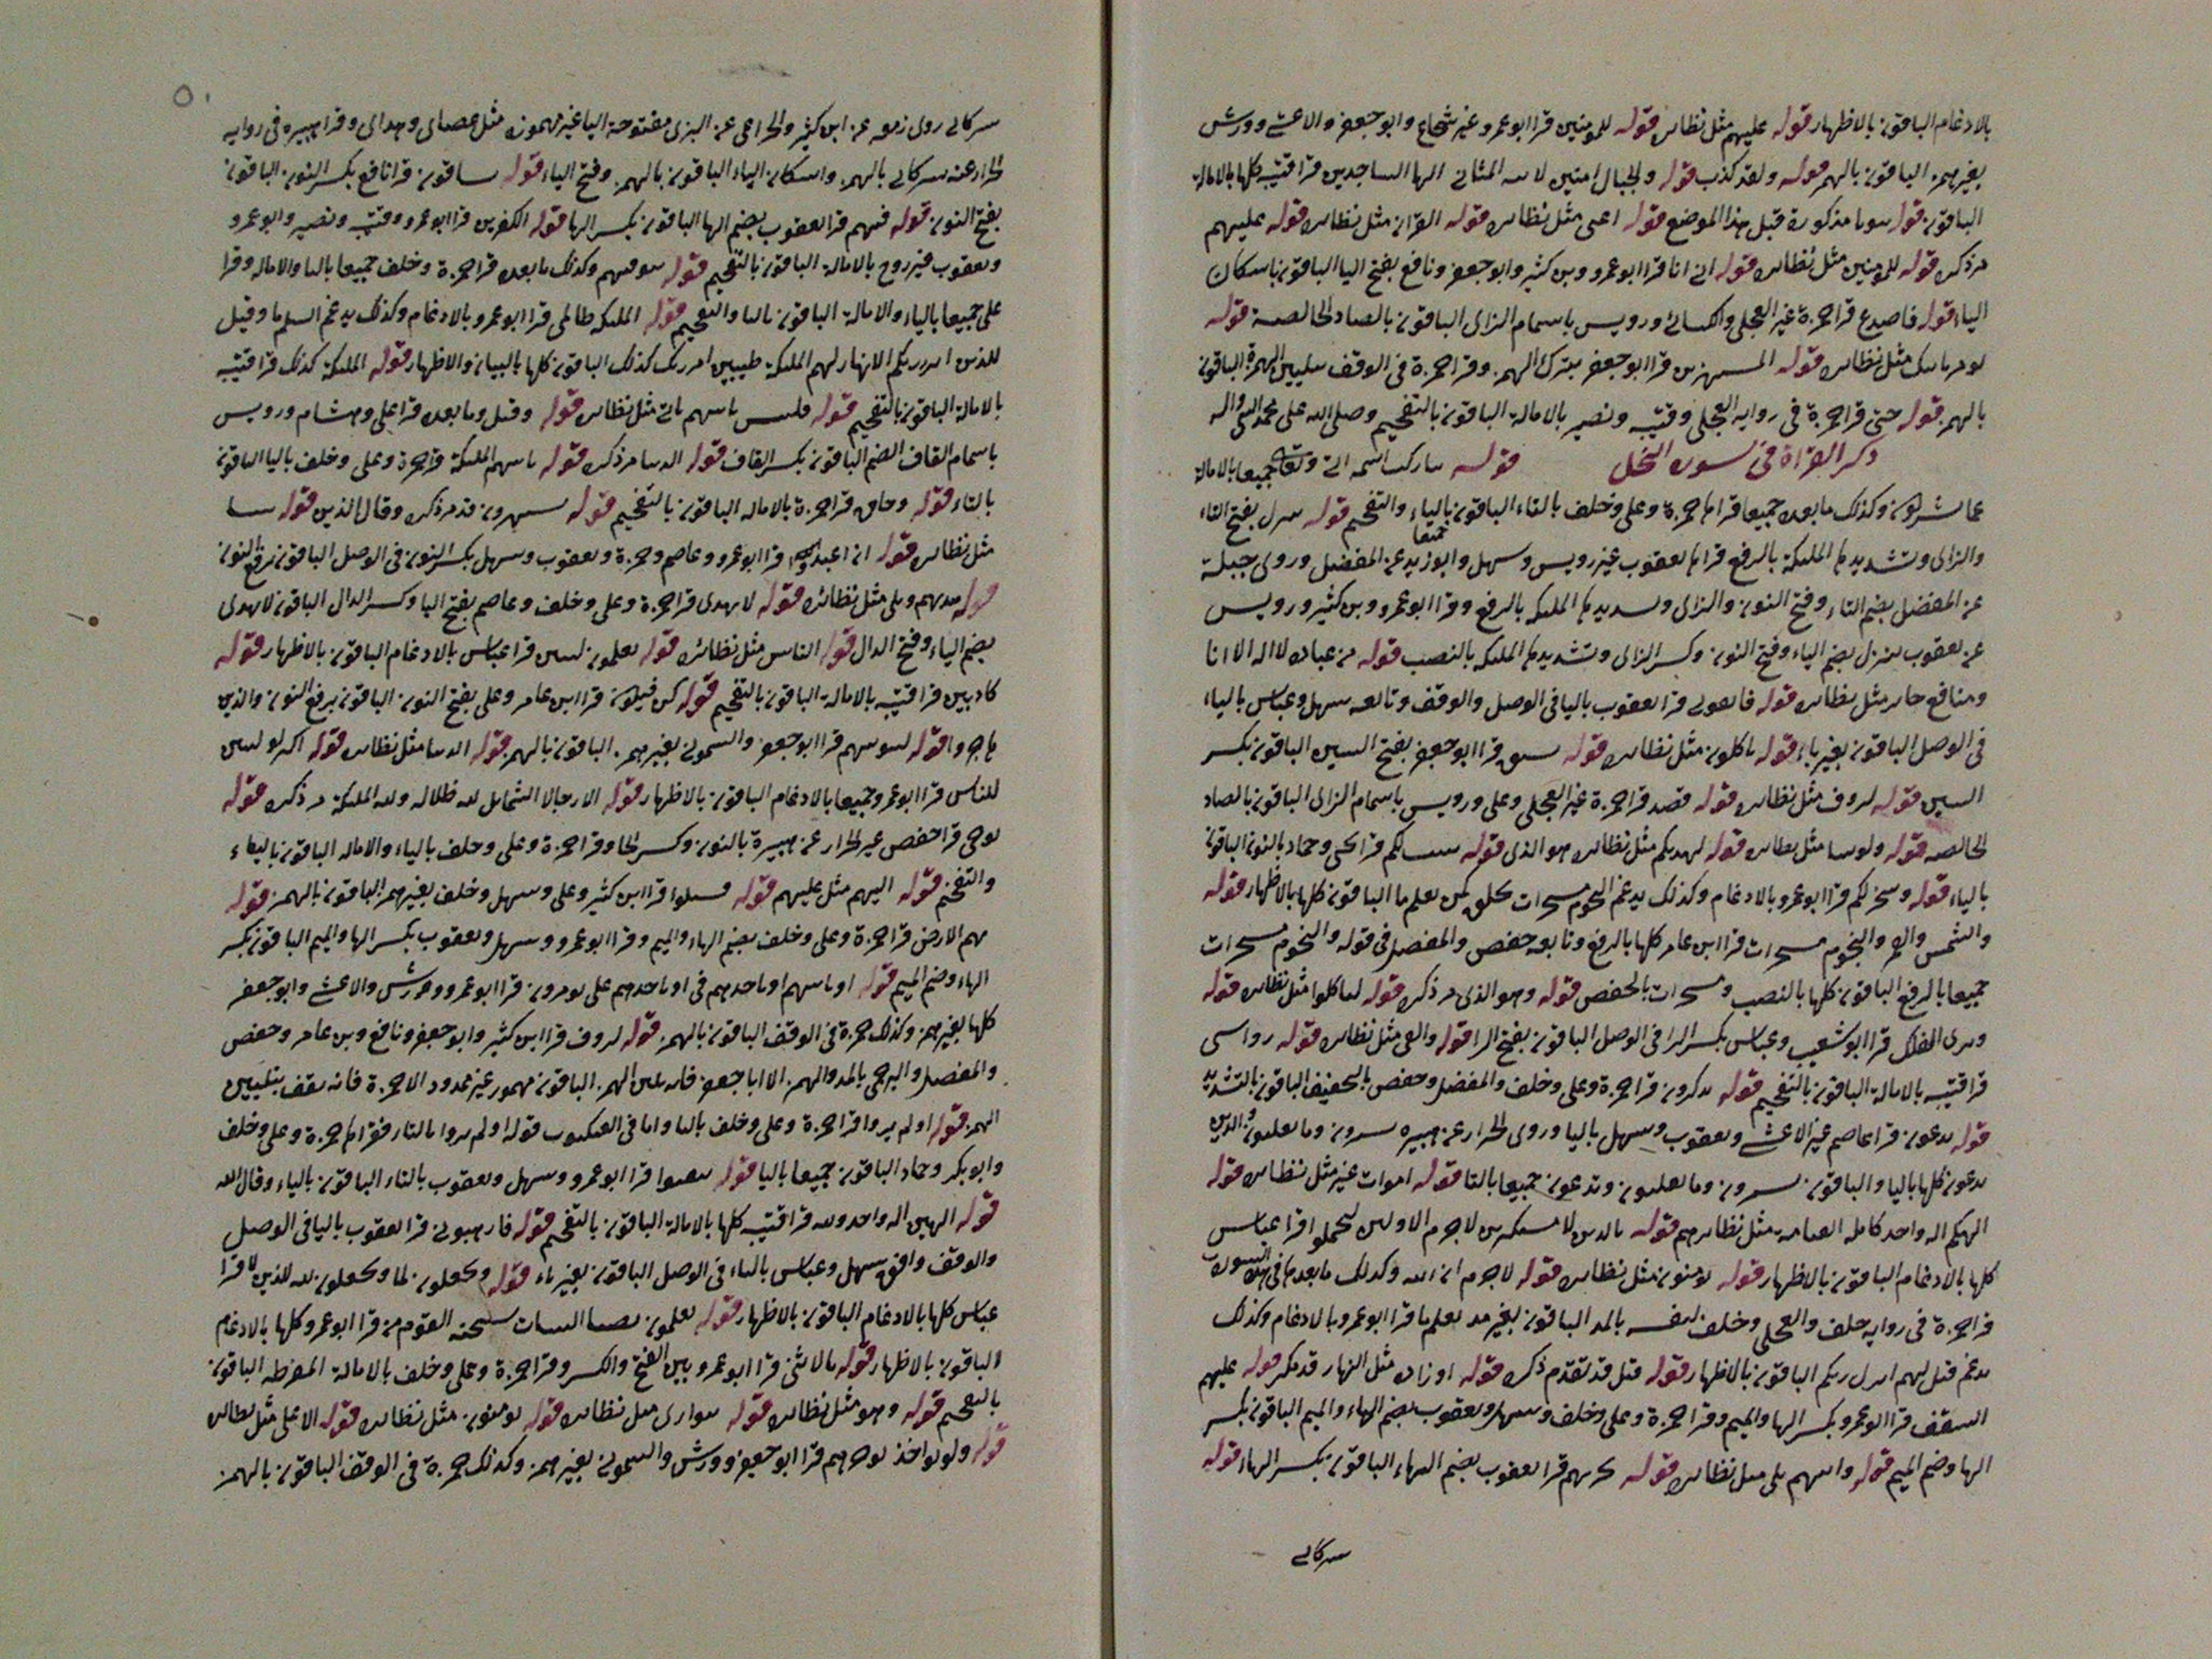 بالادغام الباقون بالاظهار قوله عليهم مثل نظاىره قوله للمومنين قرا ابو عمرو غير شجاع وابو جعفر والاعشے وورش
بغير همز الباقون بالهمز قوله ولقد كذب قوله والجبال امنين لاىىه المثانى الها الساجدين قرا قتيبه كلها بالامالة
الباقون قوله ىىوىا مذكورة قبل هذا الموضع قوله اغنى مثل نظاىره قوله القران مثل نظاىره قوله عليهم
مر ذكره قوله للمومنين مثل نظاىره قوله انى انا قرا ابو عمرو وبن كثير وابو جعفر ونافع بفتح اليا الباقون باسكان
الياء قوله فاصدع قرا حمزة غير العجلى والكسائے ورويس باشمام الزاى الباقون بالصاد الخالصة قوله
مثل نظاىره قوله المستهزىں قرا ابو جعفر بترك الهمز وقرا حمزة فى الوقف بتليين الهمزة الباقون
بالهمز قوله حتى قرا حمزة فى رواية العجلى وقتيبه ونصير بالامالة الباقون بالتفخيم وصلى الله على محمد النبى واله
ذكر القراة فى سورة النحل قوله جميعا بالامالة
عما يشركون وكذلك ما بعده جميعا قراهما حمزة وعلى وخلف بالتاء الباقون بالياء والتفخيم قوله ىىرل بفتح التاء
والزاى وتشديدها الملىكة بالرفع قراها يعقوب غير رويس وسهل وابو زيد عن المفضل وروى جبلة
عن المفضل بضم التاء وفتح النون والزاى وتشديدها الملىكه بالرفع وقرا ابو عمرو وبن كثير ورويس
عن يعقوب ىىزل بضم الياء وفتح النون وكسر الزاى وتشديدها الملىكه بالنصب قوله من عباده لا اله الا انا
ومنافع حاىر مثل نظاىره قوله فاىقونى قرا يعقوب باليا فى الوصل والوقف وتابعه سهل وعباس بالياء
فى الوصل الباقون بغير ياء قوله تاكلون مثل نظاىره قوله ىشق قرا ابو جعفر بفتح الشين الباقون بكسر
الشين قوله لروف مثل نظاىره قوله قصد قرا حمزة غير العجلى وعلى ورويس باشمام الزاى الباقون بالصاد
الخالصه قوله ولو شا مثل نظاىره قوله لهديكم مثل نظاىره هو الذى قوله ىىىت لكم قرا يحيى وحماد بالنون الباقون
بالياء قوله وسخر لكم قرا ابو عمرو بالادغام وكذلك يدغم النجوم مسخرات يخلق كمن يعلم ما الباقون كلها بالاظهار قوله
والشمس والقمر والنجوم مسخرات قرا ابن عامر كلها بالرفع وتابعه حفص والمفضل فى قوله والنجوم مسخرات
جميعا بالرفع الباقون كلها بالنصب ومسخرات بالخفض قوله وهو الذى مر ذكره قوله لتاكلوا مثل نظاىره قوله
وترى الفلك قرا ابو شعيب وعباس بكسر الرا فى الوصل الباقون بفتح الرا قوله والقى مثل نظاىره قوله رواسى
قرا قتيبه بالامالة الباقون بالتفخيم قوله تذكرون قرا حمزة وعلى وخلف والمفضل وحفص بالتخفيف الباقون بالتشديد
قوله يدعون قرا عاصم غير الاعشے ويعقوب وسهل باليا وروى الخراز عن هبيره ىسرون وما يعلنون والذين
يدعون كلها باليا والباقون تسرون وما تعلنون وتدعون جميعا بالتا قوله اموات غير مثل نظاىره قوله
الهكم اله واحد كامله القيامه مثل نظاىرهم قوله لا جرم الاولين ليحملوا قرا عباس
كلها بالادغام الباقون بالاظهار قوله يومنون مثل نظاىره قوله لا جرم ان الله وكذلك ما بعدها فى هذه السورة
قرا حمزة فى رواية خلف والعجلى وخلف لنفسه بالمد الباقون بغير مد يعلم ما قرا ابو عمرو بالادغام وكذلك
يدغم قيل لهم انزل ربكم الباقون بالاظهار قوله قيل قد تقدم ذكره قوله اوزار مثل النهار قد ذكر قوله عليهم
السقف قرا ابو عمرو بكسر الها والميم وقرا حمزة وعلى وخلف وسهل ويعقوب بضم الهاء والميم الباقون بكسر
الها وضم الميم قوله واتيهم بلى مثل نظاىره قوله يخزيهم قرا يعقوب بضم الهاء الباقون بكسر الهاء قوله
سركاى
سركاى روى زمعه عن ابن كثير والخزاعى عن البزى مفتوحة اليا غير مهموزه مثل عصاى وهداى وقرا هبيره فى رواية
الخراز عنه شركاى بالهمز واسكان الياء الباقون بالهمز وفتح الياء قوله ىشاقون قرا نافع بكسر النون الباقون
بفتح النون قوله فيهم قرا يعقوب بضم الها الباقون بكسر الها قوله الكفرين قرا ابو عمرو وقتيبه ونصير وابو عمرو
ويعقوب غير روح بالامالة الباقون بالتفخيم قوله تتوفيهم وكذلك ما بعده قرا حمزة وخلف جميعا باليا والاماله وقرا
على جميعا بالياء والامالة الباقون بالتا والتفخيم قوله الملىكه ظالمى قرا ابو عمرو بالادغام وكذلك يدغم السلم ما وقيل
للذين انزل ربكم الانهار لهم الملىكة طيبين امر ربك كذلك الباقون كلها بالبيان والاظهار قوله الملىكة كذلك قرا قتيبه
بالامالة الباقون بالتفخيم قوله فلبىس ياتيهم ياتى مثل نظاىره قوله وقيل وما بعده قرا على وهشام ورويس
باشمام القاف الضم الباقون بكسر القاف قوله الدنيا مر ذكره قوله ىاتيهم الملىكة قرا حمزة وعلى وخلف باليا الباقون
بالتاء قوله وحاق قرا حمزة بالاماله الباقون بالتفخيم قوله ىستهزون قد مر ذكره وقال الذين قوله شا
مثل نظاىره قوله ان اعبدوا قرا ابو عمرو وعاصم وحمزة ويعقوب وسهل بكسر النون فى الوصل الباقون برفع النون
قوله هديهم وبلى مثل نظائره قوله لا يهدى قرا حمزة وعلى وخلف وعاصم بفتح اليا وكسر الدال الباقون لا يهدى
بضم الياء وفتح الدال قوله الناس مثل نظائره قوله يعلمون ليبين قرا عباس بالادغام الباقون بالاظهار قوله
كاذبين قرا قتيبه بالامالة الباقون بالتفخيم قوله كن فيكون قرا ابن عامر وعلى بفتح النون الباقون برفع النون والذين
هاجروا قوله لنبوىنهم قرا ابو جعفر والشمونى بغير همز الباقون بالهمز قوله الدنيا مثل نظاىره قوله اكبر لو لتبين
للناس قرا ابو عمرو جميعا بالادغام الباقون بالاظهار قوله الا رجالا الشمايل لله ظلاله ولله الملىكة مر ذكره قوله
نوحى قرا حفص غير الخراز عن هبيرة بالنون وكسر الحا وقرا حمزة وعلى وخلف بالياء والاماله الباقون بالياء
والتفخيم قوله اليهم مثل عليهم قوله فسلوا قرا ابن كثير وعلى وسهل وخلف بغير همز الباقون بالهمز قوله
بهم الارض قرا حمزة وعلى وخلف بضم الهاء والميم وقرا ابو عمرو وسهل ويعقوب بكسر الها والميم الباقون بكسر
الهاء وضم الميم قوله او ياتيهم او ياخذهم فى او ياخذهم على يومرون قرا ابو عمرو وورش والاعشے وابو جعفر
كلها بغير همز وكذلك حمزة فى الوقف الباقون بالهمز قوله لروف قرا ابن كثير وابو جعفر ونافع وبن عامر وحفص
والمفضل والبرجمى بالمد والهمز الا ابا جعفر فانه يلين الهمز الباقون مهموز غير ممدود الا حمزة فانه يقف بتليين
الهمز قوله اولم يروا قرا حمزة وعلى وخلف بالتا واما فى العنكبوت قوله اولم يروا بالتا فقراها حمزة وعلى وخلف
وابو بكر وحماد الباقون جميعا باليا قوله ىتفيوا قرا ابو عمرو وسهل ويعقوب بالتاء الباقون بالياء وقال الله
قوله الهين اله واحد ولله قرا قتيبه كلها بالامالة الباقون بالتفخيم قوله فارهبونى قرا يعقوب باليا فى الوصل
والوقف وافق سهل وعباس بالياء فى الوصل الباقون بغير ياء قوله ويجعلون لما ويجعلون لله للذين لا قرا
عباس كلها بالادغام الباقون بالاظهار قوله يعلمون نصيبا البنات سبحنه القوم من قرا ابو عمرو كلها بالادغام
الباقون بالاظهار قوله بالانثى قرا ابو عمرو بين الفتح والكسر وقرا حمزة وعلى وخلف بالامالة المفرطه الباقون
بالتفخيم قوله وهو مثل نظاىره قوله يتوارى مثل نظاىره قوله يومنون مثل نظاىره قوله الاعلى مثل نظاىره
قوله ولو يواخذ يوخرهم قرا ابو جعفر وورش والشمونى بغير همز وكذلك حمزة فى الوقف الباقون بالهمز